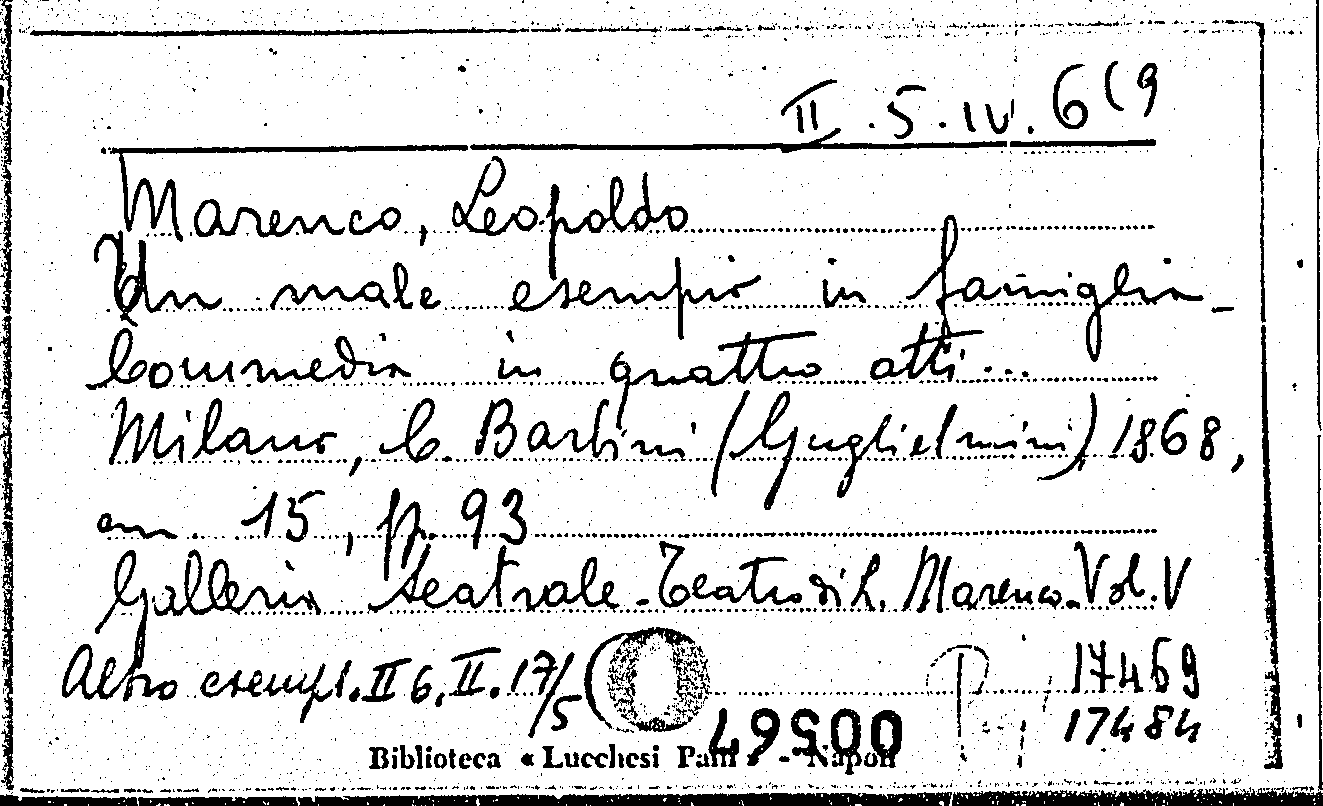 II.5.IV.6(9
Marenco, Leopoldo
Un male esempio in famiglia -
Commedia in quattro atti...
Milano, C. Barbini (Guglielmini) 1868,
cm. 15, pp. 93
Galleria teatrale - Teatro di L. Marenco. Vol. V
Altro esempl. II 6. II. 17/5(
17469
17484
00567
Biblioteca « Lucchesi Palli » - Napoli